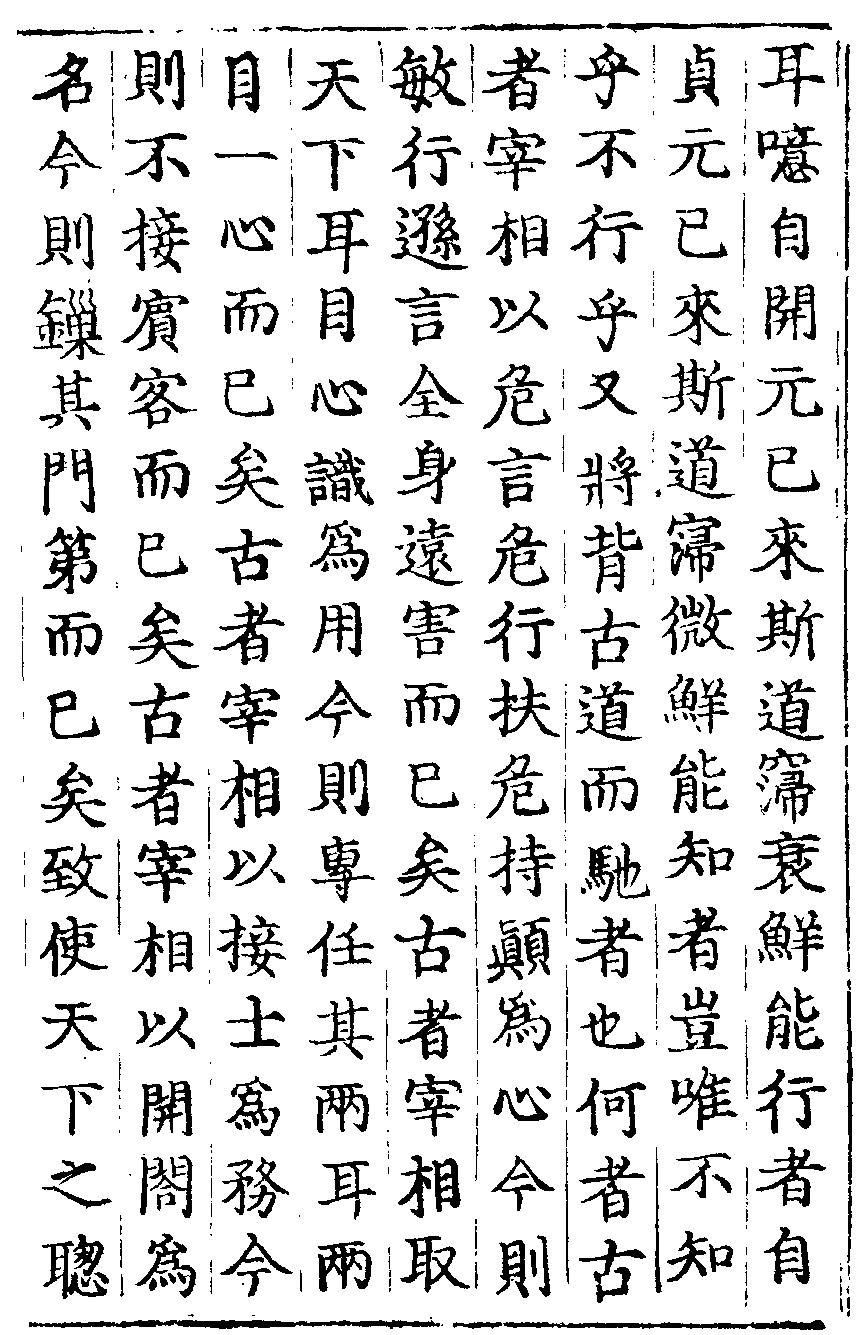 耳噫自開元已來斯道寖衰鮮能行者自
貞元已來斯道寖微鮮能知者豈唯不知
乎不行乎又將背古道而馳者也何者古
者宰相以危言危行扶危持顚爲心今則
敏行遜言全身遠害而已矣古者宰相取
天下耳目心識爲用今則專任其兩耳兩
目一心而已矣古者宰相以接士爲務今
則不接賓客而已矣古者宰相以開閤爲
名今則鏁其門第而已矣致使天下之聦